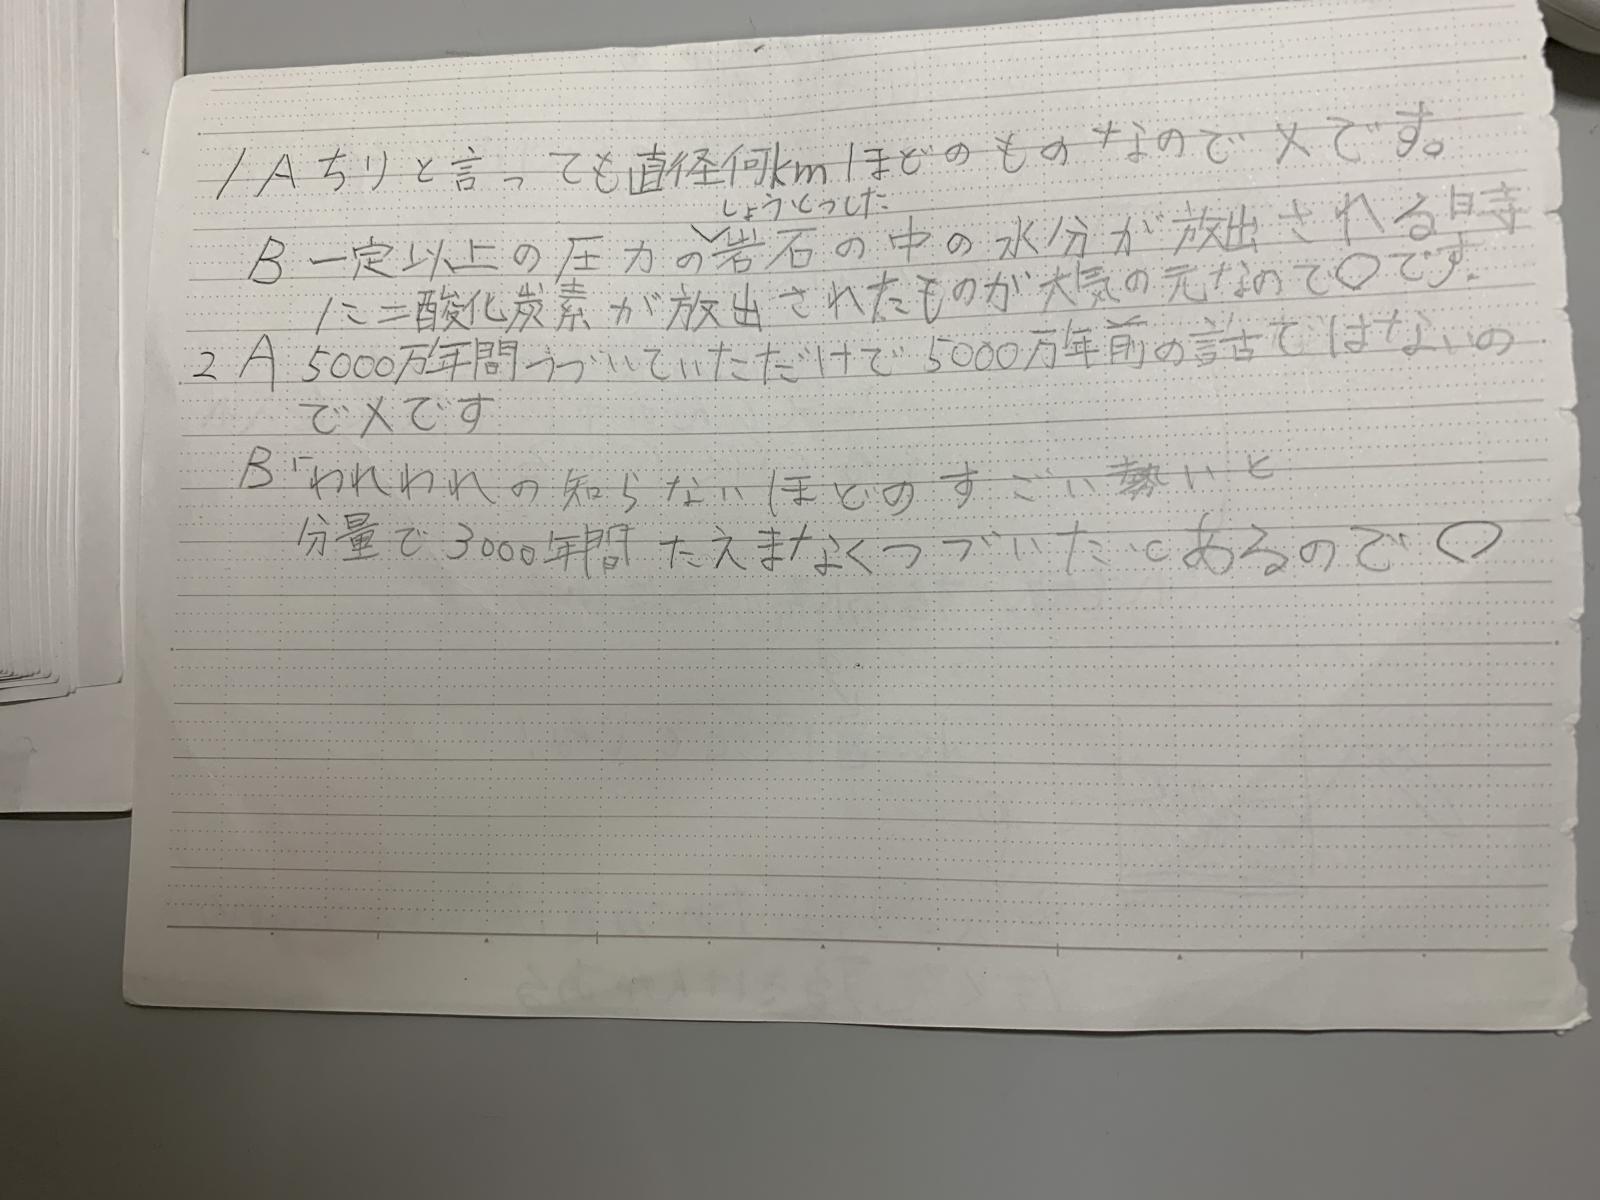 1 A ちりと言っても直径何kmほどのものなので×です。
しょうとつした
B 一定以上の圧力の岩石の中の水分が放出される時
に二酸化炭素が放出されたものが大気の元なので〇です.
2 A 5000万年間つづいていただけで5000万年前の話ではないの
で×です
B「われわれの知らないほどのすごい勢いと
分量で3000年間たえまなくつづいたとあるので〇